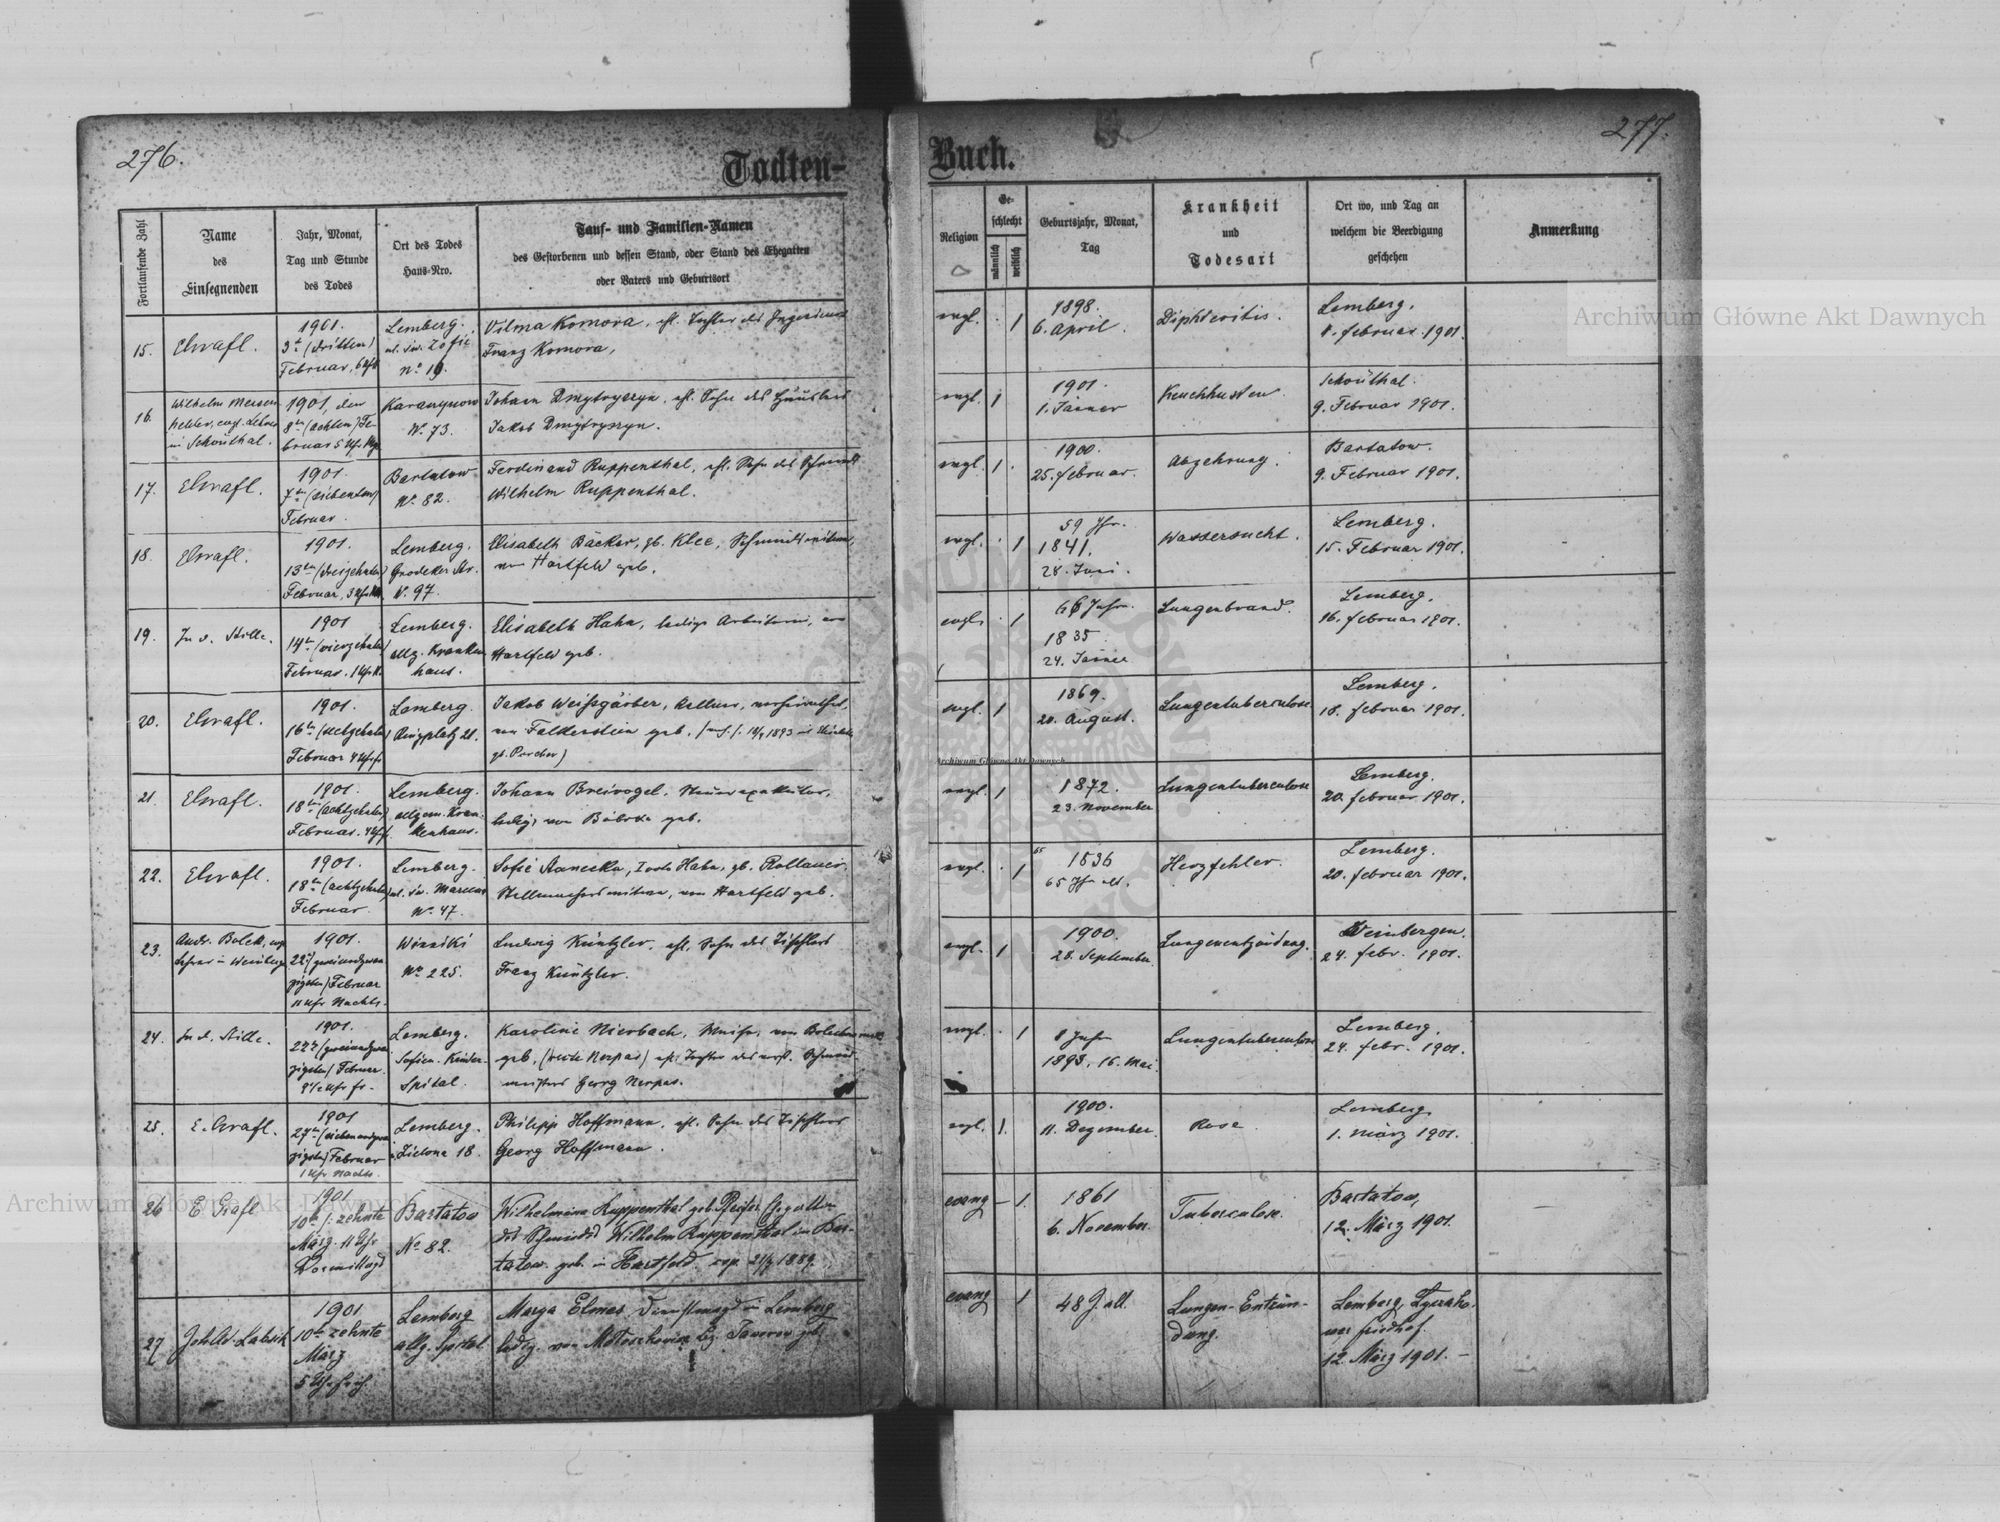 276.
Todten-
Fortlaufende Zahl
Name
des
Einsegnenden
Jahr, Monat,
Tag und Stunde
des Todes
Ort des Todes
Haus-Nro.
Tauf- und Familien-Namen
des Gestorbenen und dessen Stand, oder Stand des Ehegatten
oder Vaters und Geburtsort
15.
1901.
3te (dritten)
Februar, 6 Uhr
Lemberg.
No 19.
Vilma Komora, ehl. Tochter des Ingenieurs
Franz Komora,
16.
Wilhelm
evgl. Lehrer
in Schönthal.
1901, den
8ten (achten) Fe-
bruar 5 Uhr Mg.
No. 73.
Johann Dmytryszyn, ehl. Sohn des Häuslers
Jakob Dmytryszyn.
17.
1901.
7ten (siebenten)
Februar.
Bartatow
No. 82.
Ferdinand Ruppenthal, ehl. Sohn des Schmieds
Wilhelm Ruppenthal.
18.
1901.
13ten (dreizehnten)
Februar, 3 Uhr
Lemberg.
Grodeker Str.
N. 97.
Elisabeth Bäcker, gb. Klee, Schmiedswitwe,
von Hartfeld geb.
19.
In d. Stille.
1901
14ten (vierzehnten)
Februar. 1 Uhr
Lemberg.
allg. Kranken
haus.
Elisabeth Hahn, ledige Arbeiterin, von
Hartfeld geb.
20.
1901.
16ten (sechzehnten)
Februar 4 Uhr fr
Lemberg.
Ringplatz 21.
Jakob Weißgärber, Kellner, verheirathet,
von Falkenstein geb.
gb. Porcher)
21.
1901.
18ten (achtzehnten)
Februar. 4 Uhr f.
Lemberg.
allgem. Kran-
kenhaus.
Johann Breivogel, Steuerexekutor,
ledig, von Bóbrka geb.
22.
1901.
18ten (achtzehnten)
Februar.
Lemberg.
No. 47.
Sofie Hahn, gb. Rollauer,
Stellmacherswitwe, von Hartfeld geb.
23.
Andr. Bolek, evgl.
Lehrer in Weinbergen
1901.
22ten (zweiundzwan
zigsten) Februar
11 Uhr Nachts.
Winniki
No 225.
Ludwig Küntzler, ehl. Sohn des Tischlers
Franz Küntzler.
24.
In d. Stille.
1901.
22ten (zweiundzwan
zigsten) Februar.
9 1/2 Uhr fr.
Lemberg.
Sofien. Kinder-
Spital.
Karoline Nierbach, Waise, von
geb. (recte Nerpas) ehl. Tochter des verst. Schmied
meisters Georg Nerpas.
25.
1901
27ten (siebenundzwan
zigsten) Februar
1 Uhr Nachts.
Lemberg.
Zielona 18.
Philipp Hoffmann, ehl. Sohn des Tischlers
Georg Hoffmann.
26
1901
10te /: zehnte
März. 11 Uhr
Vormittags
Bartatow
No 82.
Wilhelmine Ruppenthal geb. Pfeifer Ehegattin
des Schmiedes Wilhelm Ruppenthal in Bar-
tatow. geb. in Hartfeld. cop. 1889.
27
1901
10te zehnte
März
5 Uhr früh
Lemberg
allg. Spital
Marya Elmes Dienstmagd in Lemberg
ledig. von
Buch.
277.
Religion
Ge-
schlecht
männlich
weiblich
Geburtsjahr, Monat,
Tag
Krankheit
und
Todesart
Ort wo, und Tag an
welchem die Beerdigung
geschehen
Anmerkung
evgl. . 1
1898.
6. April.
Diphteritis.
Lemberg.
Februar 1901.
evgl. 1
1901.
1. Jänner
Keuchhusten
Schönthal.
9. Februar 1901.
evgl. 1 .
1900.
25. Februar.
Abzehrung.
Bartatow.
9. Februar 1901.
evgl. . 1
59 Jhr.
1841.
Wassersucht.
Lemberg.
15. Februar 1901.
evgl. . 1
1835
24. Jänner
Lungenbrand.
Lemberg.
16. Februar 1901.
evgl. 1
1869.
20. August.
Lungentuberculose
Lemberg.
18. Februar 1901.
evgl. 1
1872.
23. November
Lungentuberculose
Lemberg.
20. Februar 1901.
evgl. . 1
1836
65 Jhr alt.
Herzfehler.
Lemberg.
20. Februar 1901.
evgl. 1
1900.
28. September.
Lungenentzündung.
Weinbergen.
24. Febr. 1901.
evgl. . 1
8 Jahr
1893. 16. Mai.
Lungentuberculose
Lemberg.
24. Febr. 1901.
evgl. 1.
1900.
11. Dezember.
Rose.
Lemberg
1. März 1901.
evang – 1.
1861
6. November.
Tuberculose.
Bartatow,
12. März 1901.
evang 1
48 J. alt.
Lungen-Entzün-
dung.
Lemberg,
Friedhof.
12. März 1901. –
Archiwum Główne Akt Dawnych
Archiwum Główne Akt Dawnych
Archiwum Główne Akt Dawnych